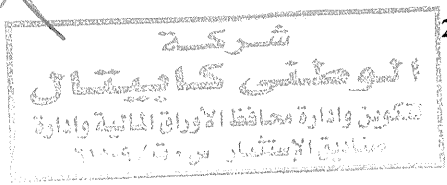 شركة
الوطنى كابيتال
لتكوين وادارة محافظ الأوراق المالية وادارة
صناديق الإستثمار س
2